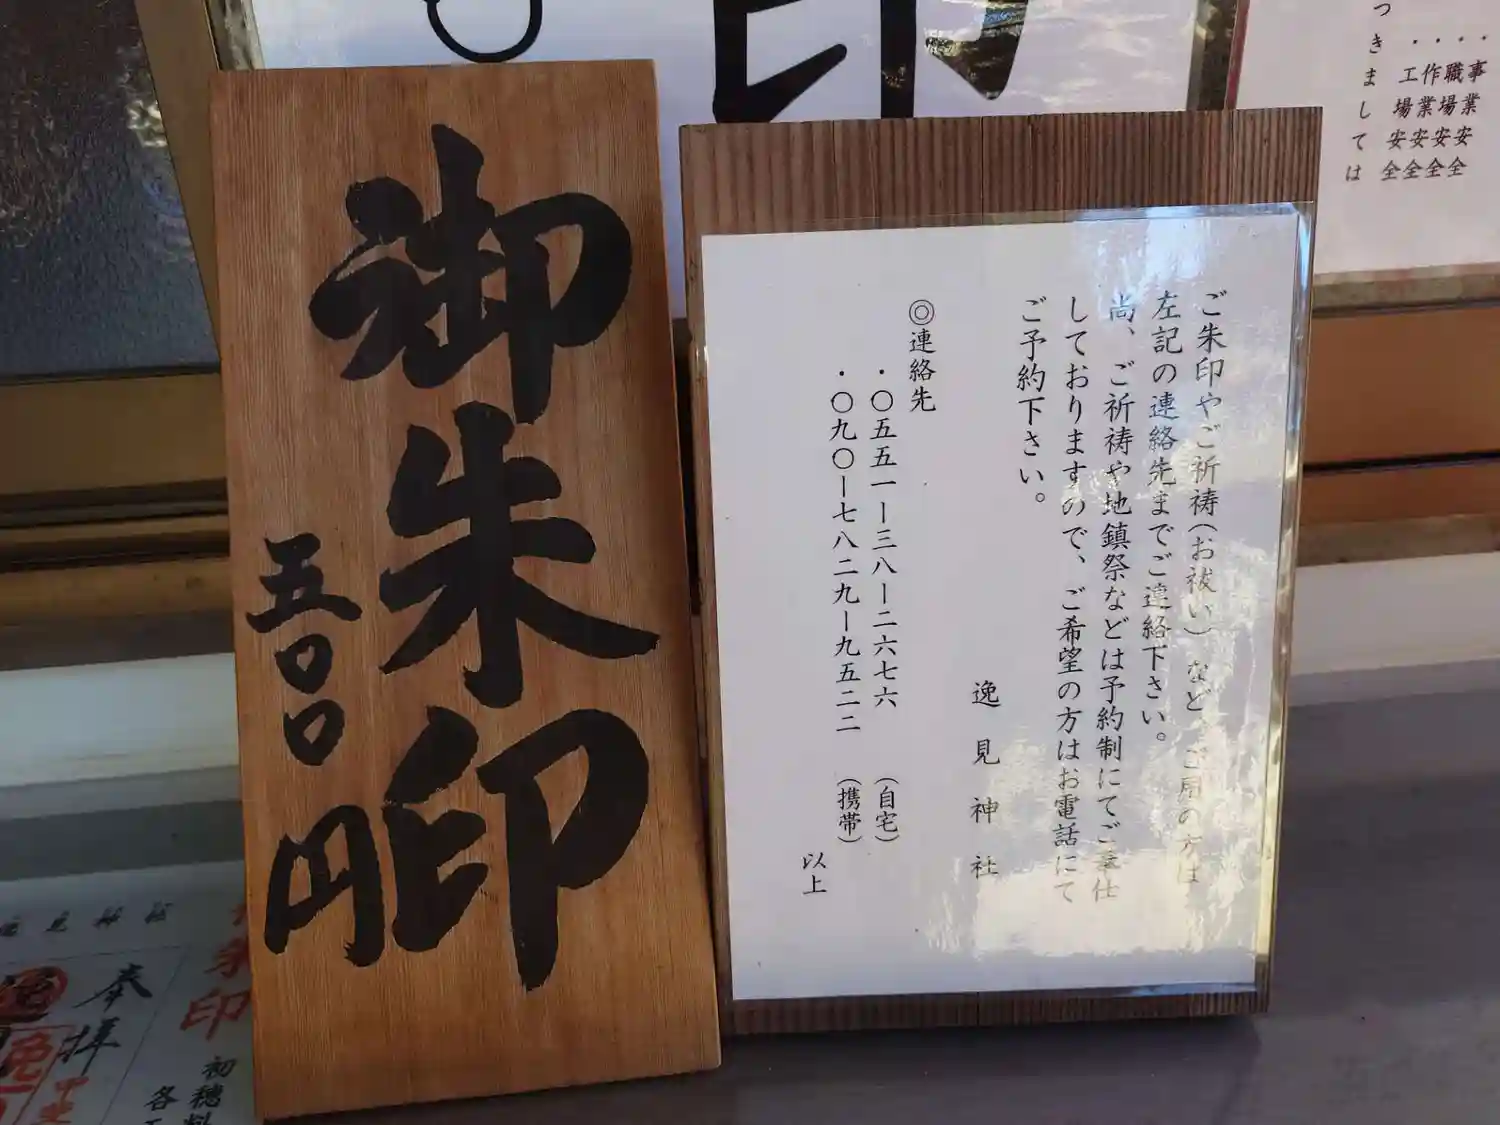 御朱印
五〇〇円
ご朱印やご祈祷(お祓い)など、ご用の方は
左記の連絡先までご連絡下さい。
尚、ご祈祷や地鎮祭などは予約制にてご奉仕
しておりますので、ご希望の方はお電話にて
ご予約下さい。
逸見神社
◎連絡先
・〇五五一ー三八ー二六七六 (自宅)
・〇九〇ー七八二九ー九五二二 (携帯)
以上
印
・事業安全
・職場安全
・作業安全
・工場安全
つきましては
朱印
初穂料
各
奉拝
逸見神社